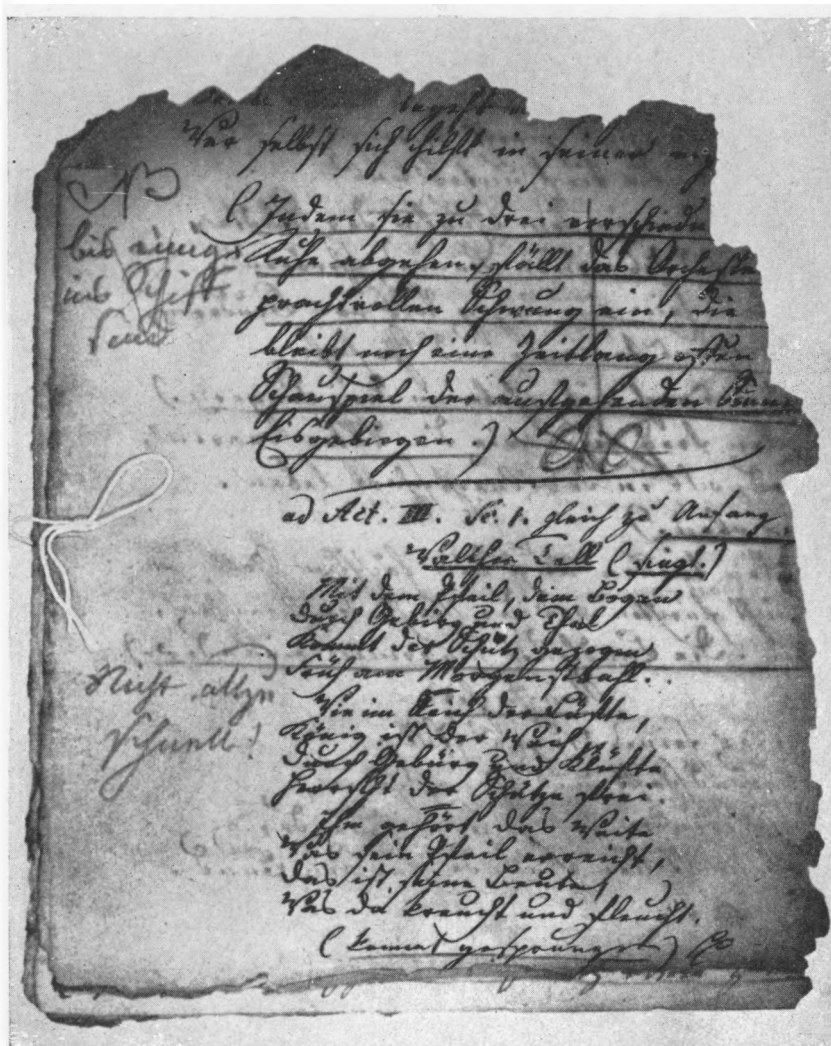 begeht
Wer selbst sich hilft in seiner eig
NB
bis einige
ins Schiff
sind
(Indem sie zu drei verschiede
Ruhe abgehen, fällt das Orcheste
prachtvollen Schwung ein, die
bleibt noch eine Zeitlang offen
Schauspiel der aufgehenden Sonne
Eisgebirgen.)
ad Act. III. Sc. 1. gleich zu Anfang
Walther Tell (singt.)
Mit dem Pfeil, dem Bogen
Durch Gebirg und Thal
Kommt der Schütz gezogen
Früh am Morgenstrahl.
Nicht allzu
schnell!
Wie im Reich der Lüfte,
König ist der Weih,
Durch Gebürg und Klüfte
Herrscht der Schütze frei.
Ihm gehört das Weite
Was sein Pfeil erreicht,
Das ist seine Beute,
Was da kreucht und fleucht.
(kommt gesprungen)